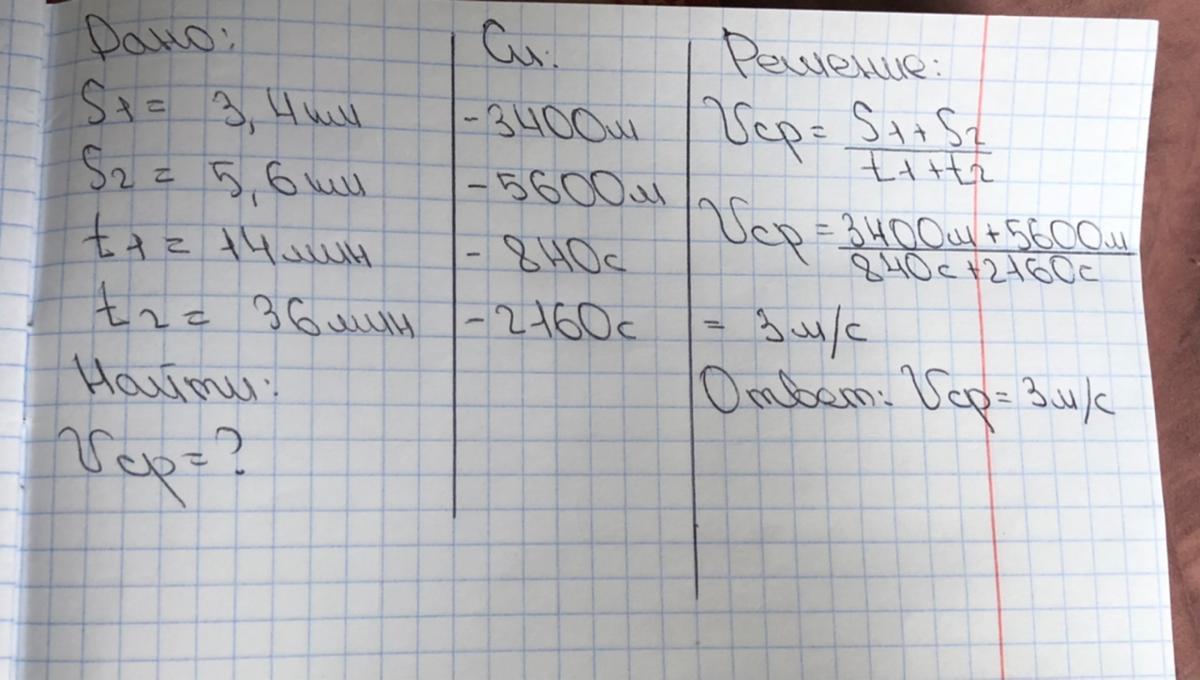 Дано:
S1 = 3,4км
S2 = 5,6км
t1 = 14мин
t2 = 36мин
Найти:
Vср = ?
Си:
- 3400м
- 5600м
- 840с
- 2160с
Решение:
Vср = S1 + S2
t1 + t2
Vср = 3400м + 5600м
840с + 2160с
= 3м/с
Ответ: Vср = 3м/с